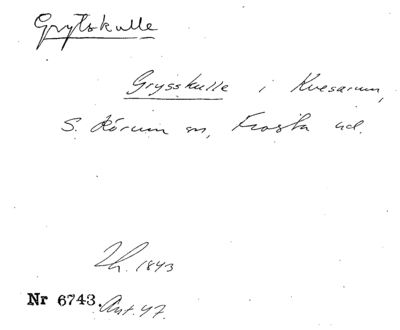 Grytskulle
Grysskulle i Kvesarum,
S. Rörum sn, Frosta hd.
Th. 1843
Nr 6743. Ant. 47.